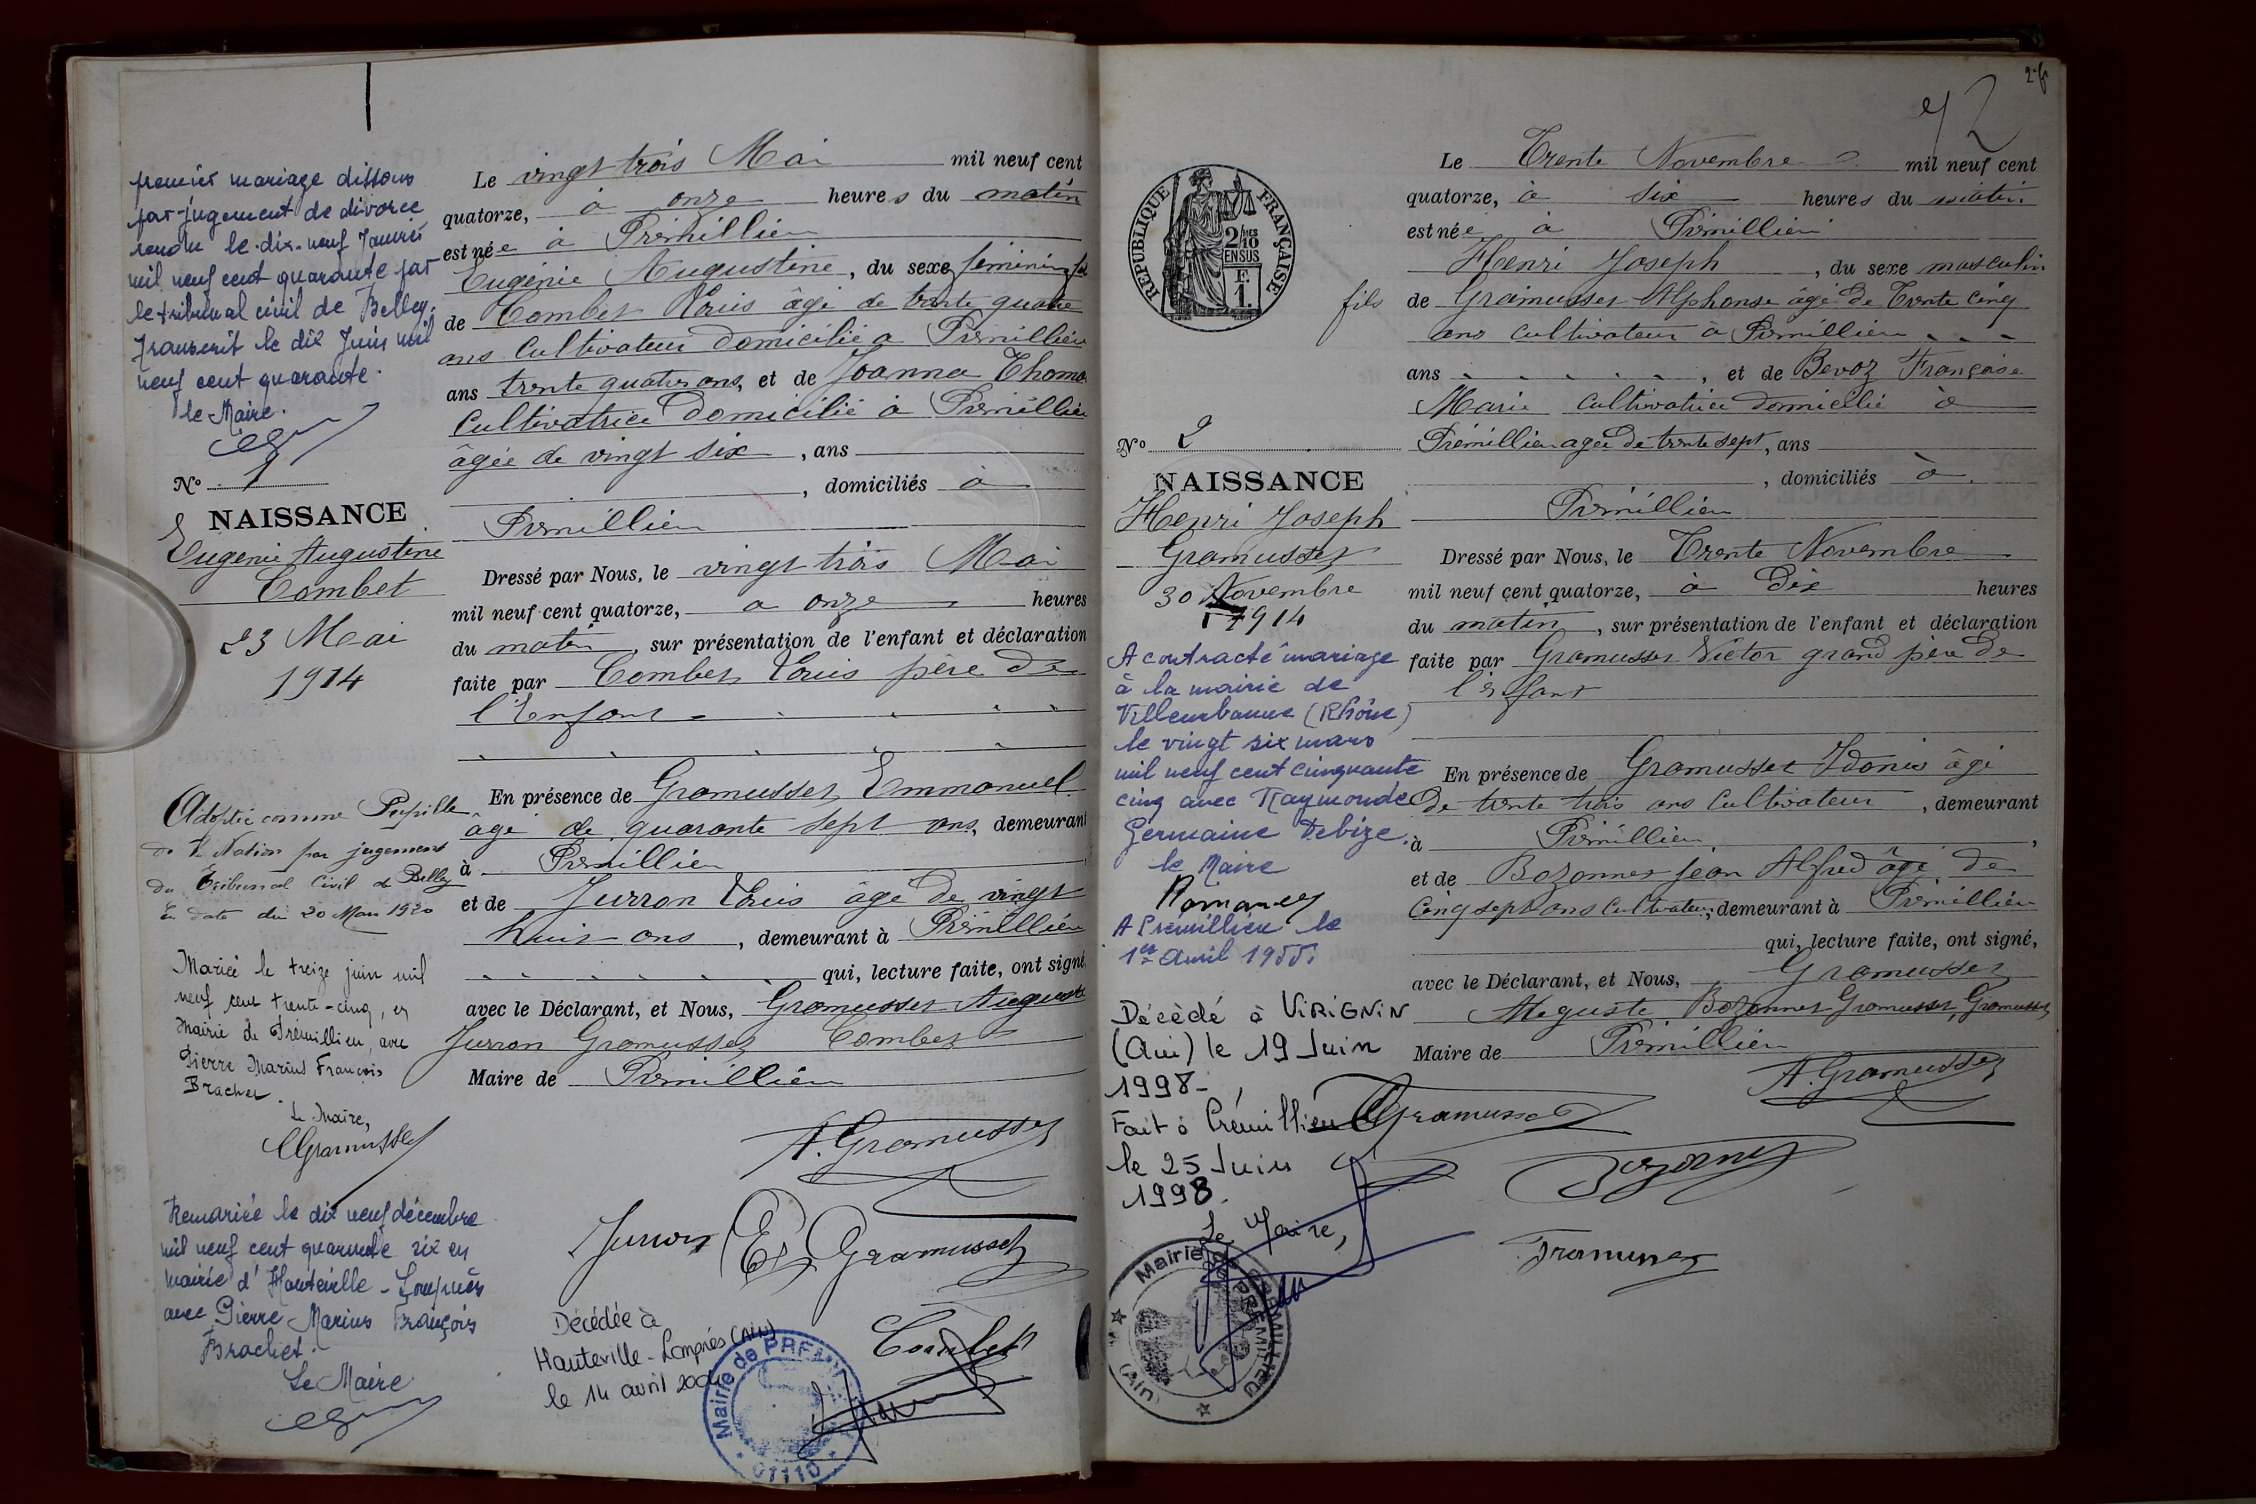 premier mariage dissous
par jugement de divorce
rendu le dix-neuf Janvier
mil neuf cent quarante par
le tribunal civil de Belley.
Transcrit le dix Juin mil
neuf cent quarante.
le Maire.
N° 1
NAISSANCE
Eugénie Augustine
Combet
23 Mai
1914
Adoptée comme Pupille
de la Nation par jugement
du Tribunal Civil de Belley
en date du 20 Mars 1920
Mariée le treize juin mil
neuf cent trente-cinq, en
Mairie de Prémillieu, avec
Pierre Marius François
Brachet.
Le Maire,
CGramusset
Remariée le dix neuf décembre
mil neuf cent quarante six en
mairie d'Hauteville-Lompnès
avec Pierre Marius François
Brachet.
Le Maire
Le vingt trois Mai mil neuf cent
quatorze, à onze heures du matin
est née à Prémillieu
Eugénie Augustine, du sexe féminin
de Combet Louis âgé de trente quatre
ans Cultivateur domicilié a Prémillieu
ans trente quatre ans, et de Joanna Thoma
Cultivatrice domicilié à Prémillieu
âgée de vingt six, ans
, domiciliés à
Prémillieu
Dressé par Nous, le vingt trois Mai
mil neuf cent quatorze, a onze heures
du matin, sur présentation de l'enfant et déclaration
faite par Combet Louis père de
l'Enfant
En présence de Gramusset Emmanuel
âgé de quarante sept ans, demeurant
à Prémillieu
et de Jurron Louis âgé de vingt
huit ans, demeurant à Prémillieu
qui, lecture faite, ont signé
avec le Déclarant, et Nous, Gramusset Auguste
Jurron Gramusset Combet
Maire de Prémillieu
A. Gramusset
Jurron Em Gramusset
Combet
Décédée à
Hauteville-Lompnès (Ain)
le 14 avril 2004
Mairie de PREMI
01110
28
42
RÉPUBLIQUE FRANÇAISE
2/10 MES
EN SUS
F.
1.
fils
N° 2
NAISSANCE
Henri Joseph
Gramusset
30 Novembre
1914
A contracté mariage
à la mairie de
Villeurbanne (Rhône)
le vingt six mars
mil neuf cent cinquante
cinq avec Raymonde
Germaine Debize.
le Maire
A Prémillieu le
1er avril 1955.
Décédé à VIRIGNIN
(Ain) le 19 Juin
1998-
Fait à Prémillieu
le 25 Juin
1998.
Le Maire,
Mairie de PREMILLIEU
(Ain)
Le Trente Novembre mil neuf cent
quatorze, à six heures du matin
est née à Prémillieu
Henri Joseph, du sexe masculin
de Gramusset Alphonse âgé de Trente cinq
ans cultivateur à Prémillieu
ans, et de Bevoz Françoise
Marie cultivatrice domicilié à
Prémillieu agée de trente sept, ans
, domiciliés à
Prémillieu
Dressé par Nous, le Trente Novembre
mil neuf cent quatorze, à Dix heures
du matin, sur présentation de l'enfant et déclaration
faite par Gramusset Victor grand père de
l'enfant
En présence de Gramusset Idonis âgé
de trente trois ans Cultivateur, demeurant
à Prémillieu,
et de Bozonnet Jean Alfred âgé de
Cinq sept ans cultivateur, demeurant à Prémillieu
qui, lecture faite, ont signé,
avec le Déclarant, et Nous, Gramusset
Auguste Bozonnet Gramusset, Gramusset
Maire de Prémillieu
A. Gramusset
Gramusset
Bozonnet
Gramusset